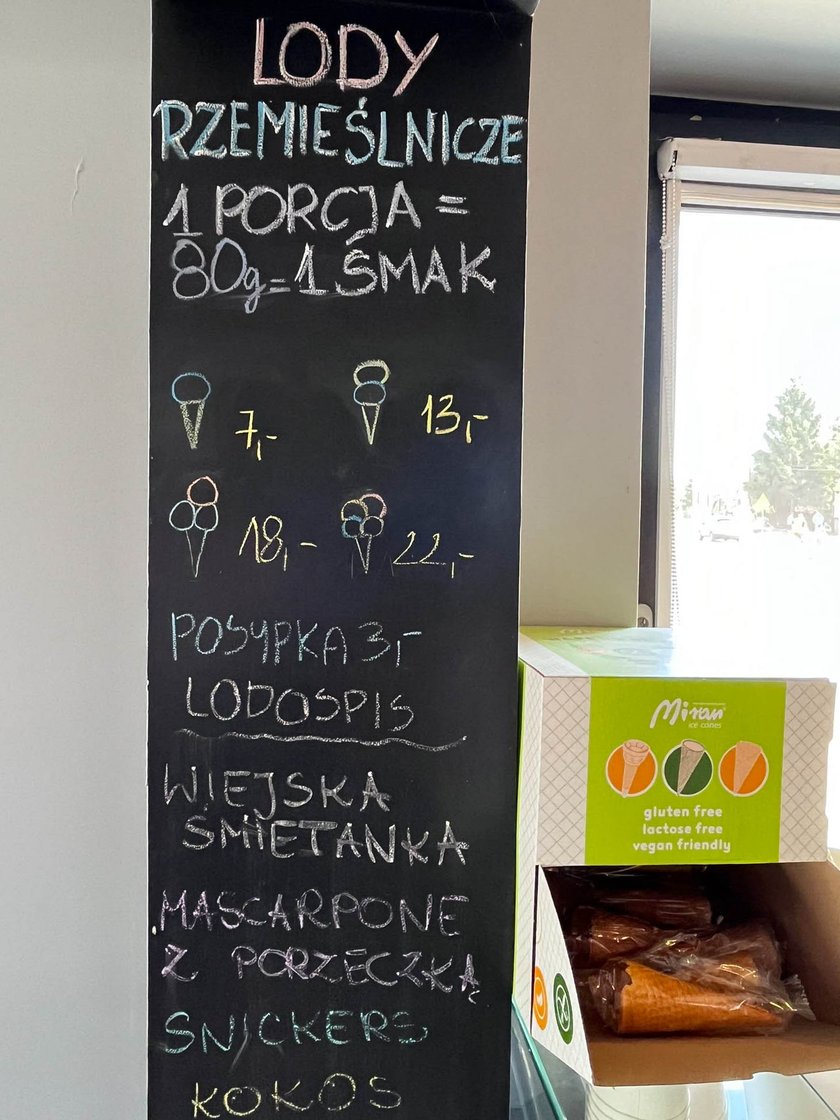 LODY
RZEMIEŚLNICZE
1 PORCJA =
80g=1 SMAK
7,- 13,-
18,- 22,-
POSYPKA 3,-
LODOSPIS
WIEJSKA
ŚMIETANKA
MASCARPONE
Z PORZECZKĄ
SNICKERS
KOKOS
Miran
ice cones
gluten free
lactose free
vegan friendly